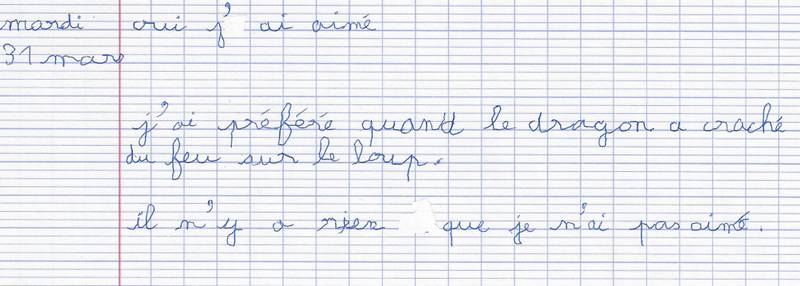 mardi oui j'ai aimé
31 mars
j'ai préféré quand le dragon a craché
du feu sur le loup.
il n'y a rien que je n'ai pas aimé.